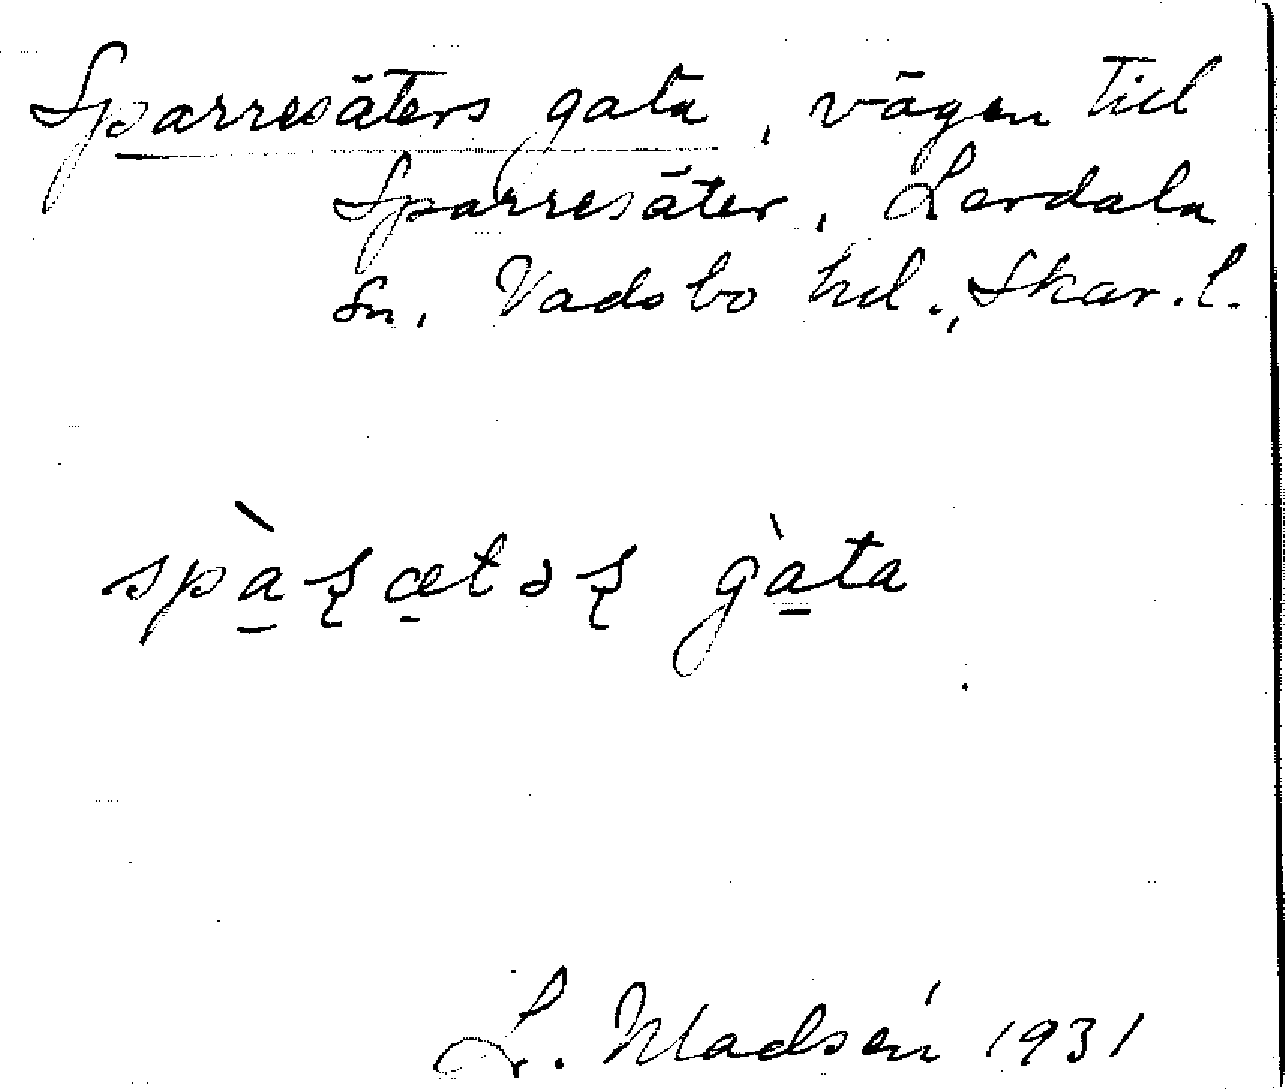 Sparresäters gata, vägen till
Sparresäter, Lerdala
sn, Vadsbo hd., Skar. l.
spà̠ʂæ̠təʂ gà̠ta
L. Madsén 1931